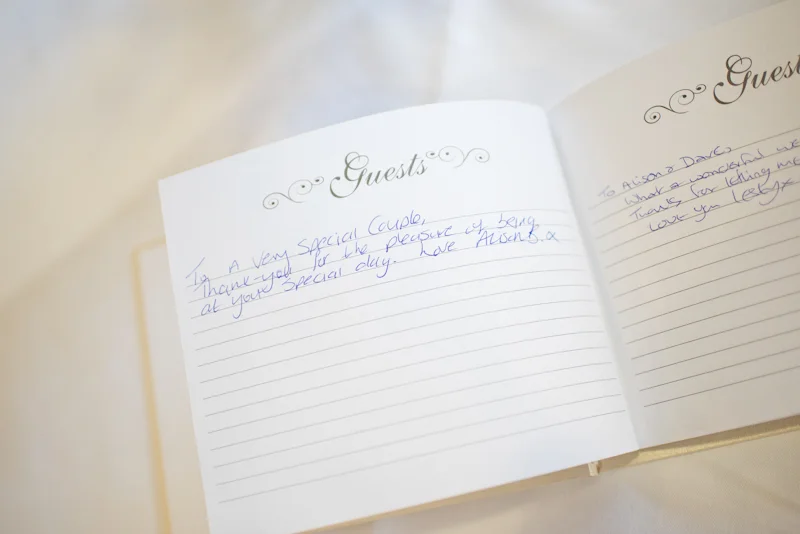 Guests
To A Very Special Couple,
Thank-you for the pleasure of being
at your Special day. Love Alison
Guests
To Alison & Dave,
What a wonderful we
Thanks for letting me
Love you